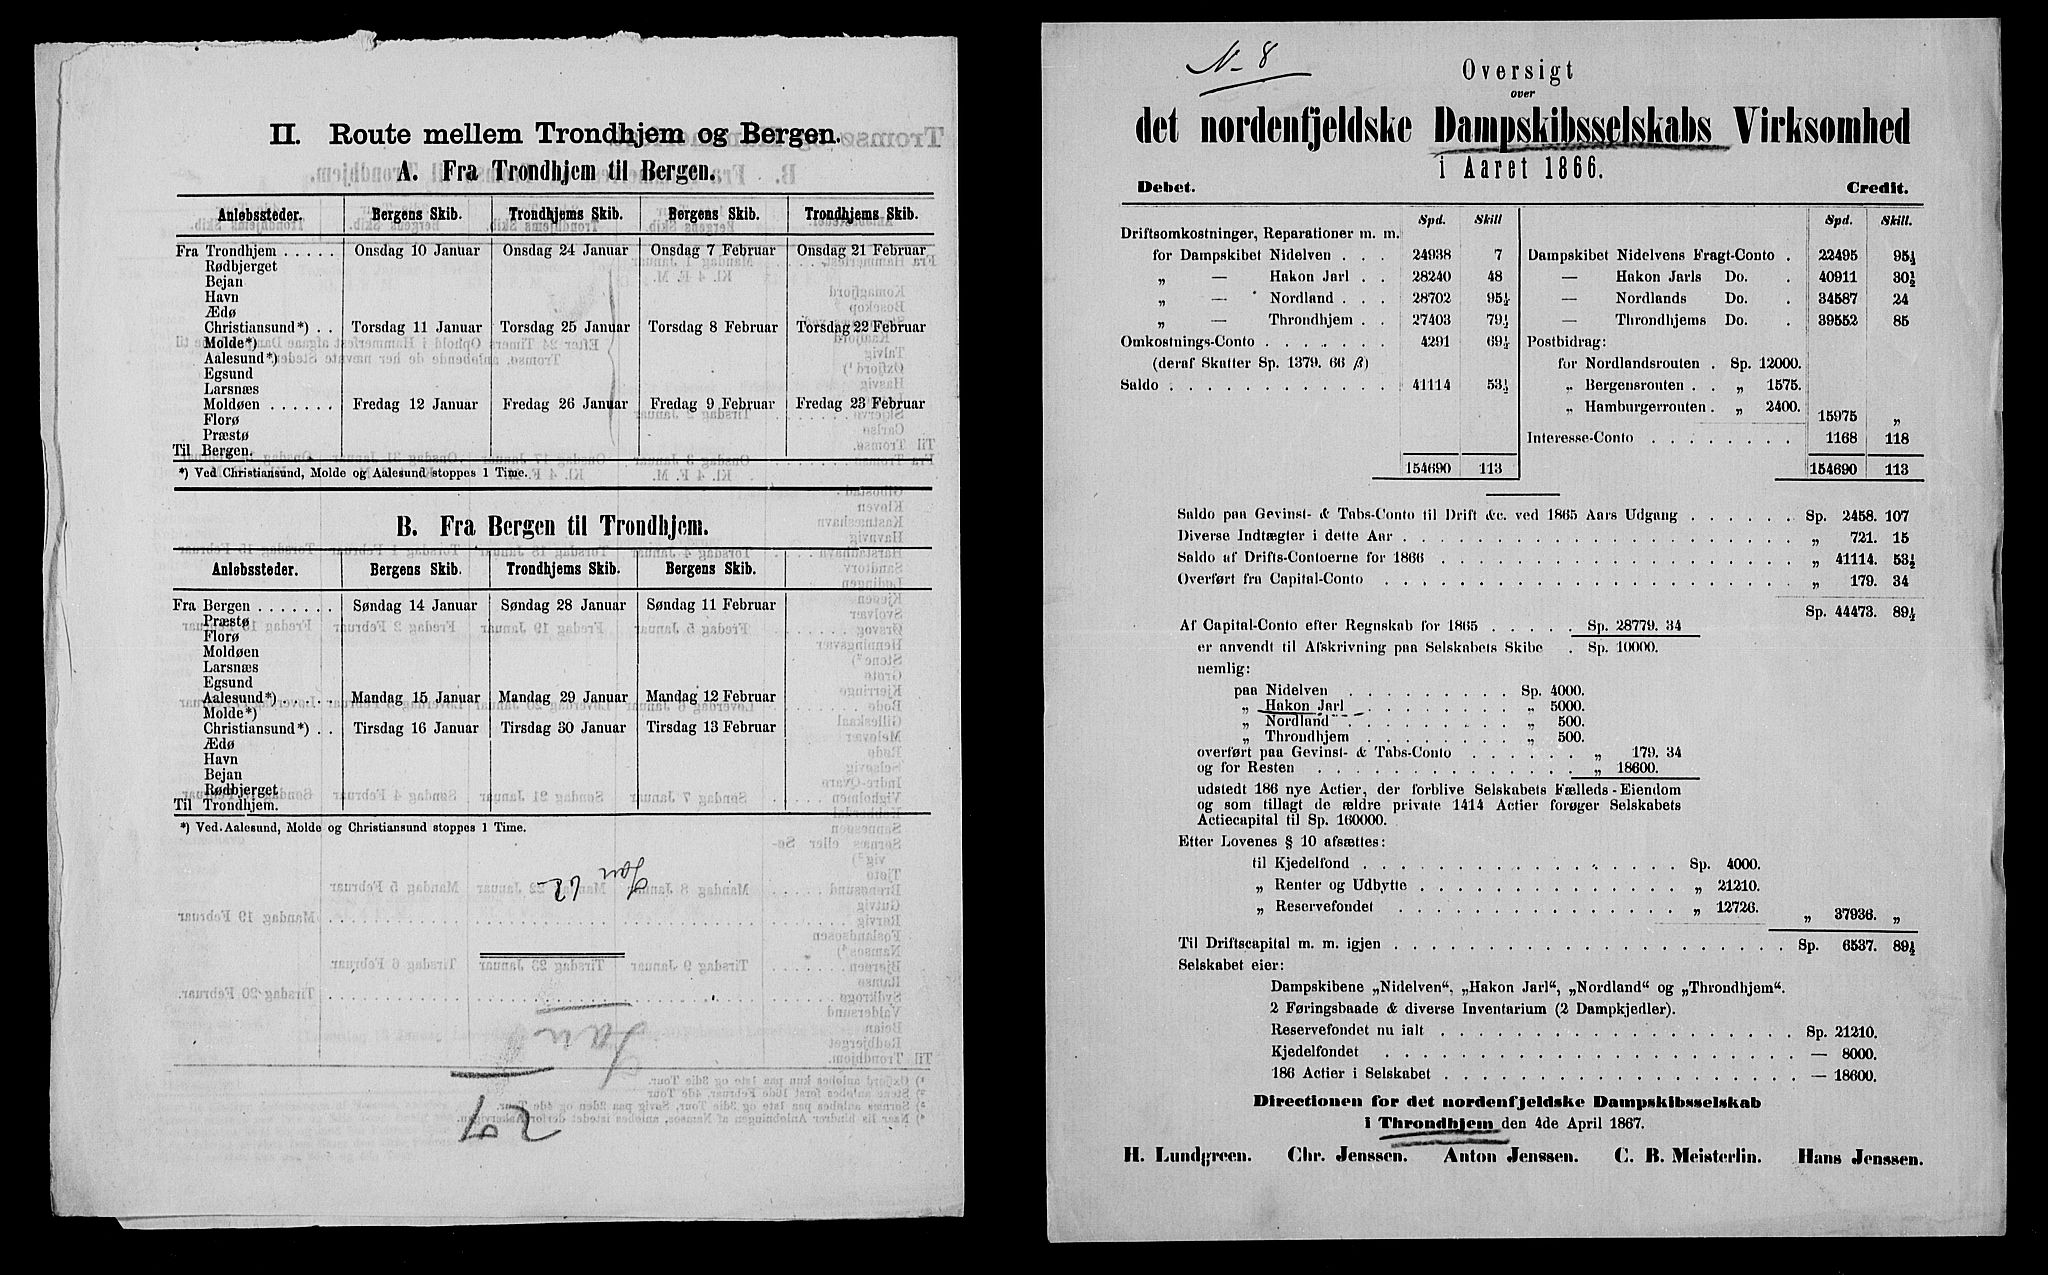 II. Route mellem Trondhjem og Bergen.
A. Fra Trondhjem til Bergen.
Anløbssteder. Bergens Skib. Trondhjems Skib. Bergens Skib. Trondhjems Skib.
Fra Trondhjem . . . . . Onsdag 10 Januar Onsdag 24 Januar Onsdag 7 Februar Onsdag 21 Februar
Rødbjerget
Bejan
Havn
Ædø
Christiansund*) . . Torsdag 11 Januar Torsdag 25 Januar Torsdag 8 Februar Torsdag 22 Februar
Molde*)
Aalesund*)
Egsund
Larsnæs
Moldøen . . . . . . Fredag 12 Januar Fredag 26 Januar Fredag 9 Februar Fredag 23 Februar
Florø
Præstø
Til Bergen.
*) Ved Christiansund, Molde og Aalesund stoppes 1 Time.
B. Fra Bergen til Trondhjem.
Anløbssteder. Bergens Skib. Trondhjems Skib. Bergens Skib.
Fra Bergen . . . . . . . Søndag 14 Januar Søndag 28 Januar Søndag 11 Februar
Præstø
Florø
Moldøen
Larsnæs
Egsund
Aalesund*) . . . . . Mandag 15 Januar Mandag 29 Januar Mandag 12 Februar
Molde*)
Christiansund*) . . Tirsdag 16 Januar Tirsdag 30 Januar Tirsdag 13 Februar
Ædø
Havn
Bejan
Rødbjerget
Til Trondhjem.
*) Ved Aalesund, Molde og Christiansund stoppes 1 Time.
N. 8
Oversigt
over
det nordenfjeldske Dampskibsselskabs Virksomhed
i Aaret 1866.
Debet. Credit.
Spd. Skill Spd. Skill.
Driftsomkostninger, Reparationer m. m.
for Dampskibet Nidelven . . . 24938 7 Dampskibet Nidelvens Fragt-Conto . 22495 95½
„ — Hakon Jarl . . 28240 48 — Hakon Jarls Do. . 40911 30½
„ — Nordland . . . 28702 95½ — Nordlands Do. . 34587 24
„ — Throndhjem . . 27403 79½ — Throndhjems Do. . 39552 85
Omkostnings-Conto . . . . . . . 4291 69½ Postbidrag:
(deraf Skatter Sp. 1379. 66 ß) for Nordlandsrouten . Sp. 12000.
Saldo . . . . . . . . . . . . 41114 53½ „ Bergensrouten . . „ 1575.
„ Hamburgerrouten . „ 2400. 15975 „
Interesse-Conto . . . . . . . . 1168 118
154690 113 154690 113
Saldo paa Gevinst- & Tabs-Conto til Drift &c. ved 1865 Aars Udgang . . . . . . Sp. 2458. 107
Diverse Indtægter i dette Aar . . . . . . . . . . . . . . . . . . „ 721. 15
Saldo af Drifts-Contoerne for 1866 . . . . . . . . . . . . . . . . „ 41114. 53½
Overført fra Capital-Conto . . . . . . . . . . . . . . . . . . . „ 179. 34
Sp. 44473. 89½
Af Capital-Conto efter Regnskab for 1865 . . . . . Sp. 28779. 34
er anvendt til Afskrivning paa Selskabets Skibe . Sp. 10000.
nemlig:
paa Nidelven . . . . . . . . . Sp. 4000.
„ Hakon Jarl . . . . . . . . „ 5000.
„ Nordland . . . . . . . . . „ 500.
„ Throndhjem . . . . . . . . „ 500.
overført paa Gevinst- & Tabs-Conto . . . . . . „ 179. 34
og for Resten . . . . . . . . . . . . „ 18600.
udstedt 186 nye Actier, der forblive Selskabets Fælleds-Eiendom
og som tillagt de ældre private 1414 Actier forøger Selskabets
Actiecapital til Sp. 160000.
Efter Lovenes § 10 afsættes:
til Kjedelfond . . . . . . . . . . . . . . . Sp. 4000.
„ Renter og Udbytte . . . . . . . . . . . . . „ 21210.
„ Reservefondet . . . . . . . . . . . . . . „ 12726.
„ 37936. „
Til Driftscapital m. m. igjen . . . . . . . . . . . . . . . . . . Sp. 6537. 89½
Selskabet eier:
Dampskibene „Nidelven“, „Hakon Jarl“, „Nordland“ og „Throndhjem“.
2 Føringsbaade & diverse Inventarium (2 Dampkjedler).
Reservefondet nu ialt . . . . . . . . . . . . . . . . . Sp. 21210.
Kjedelfondet . . . . . . . . . . . . . . . . . . . . — 8000.
186 Actier i Selskabet . . . . . . . . . . . . . . . . . — 18600.
Directionen for det nordenfjeldske Dampskibsselskab
i Throndhjem den 4de April 1867.
H. Lundgreen. Chr. Jenssen. Anton Jenssen. C. B. Meisterlin. Hans Jenssen.